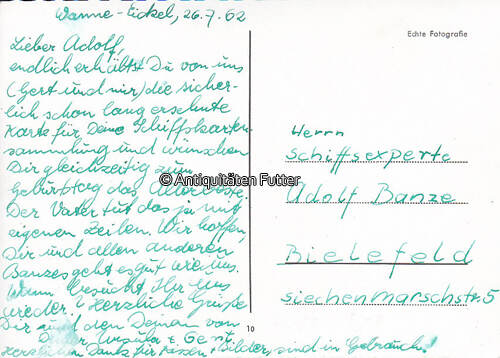 Wanne-Eickel, 26.7.62
Echte Fotografie
Lieber Adolf,
endlich erhältst Du von uns
(Gert und mir) die sicher-
lich schon lang ersehnte
Karte für Deine Schiffskarten-
sammlung und wünschen
Dir gleichzeitig zum
Geburtstag das Allerbeste.
Der Vater tut das ja mit
eigenen Zeilen. Wir hoffen,
Dir und allen anderen
Banzes geht es gut wie uns.
Wann besucht Ihr uns
wieder? Herzliche Grüße
Dir und den Deinen von
Ursula u. Gert
Herzlichen Dank für Kissen + Bilder, sind in Gebrauch!
Herrn
Schiffsexperte
Adolf Banze
Bielefeld
Siechenmarschstr. 5
10
© Antiquitäten Futter